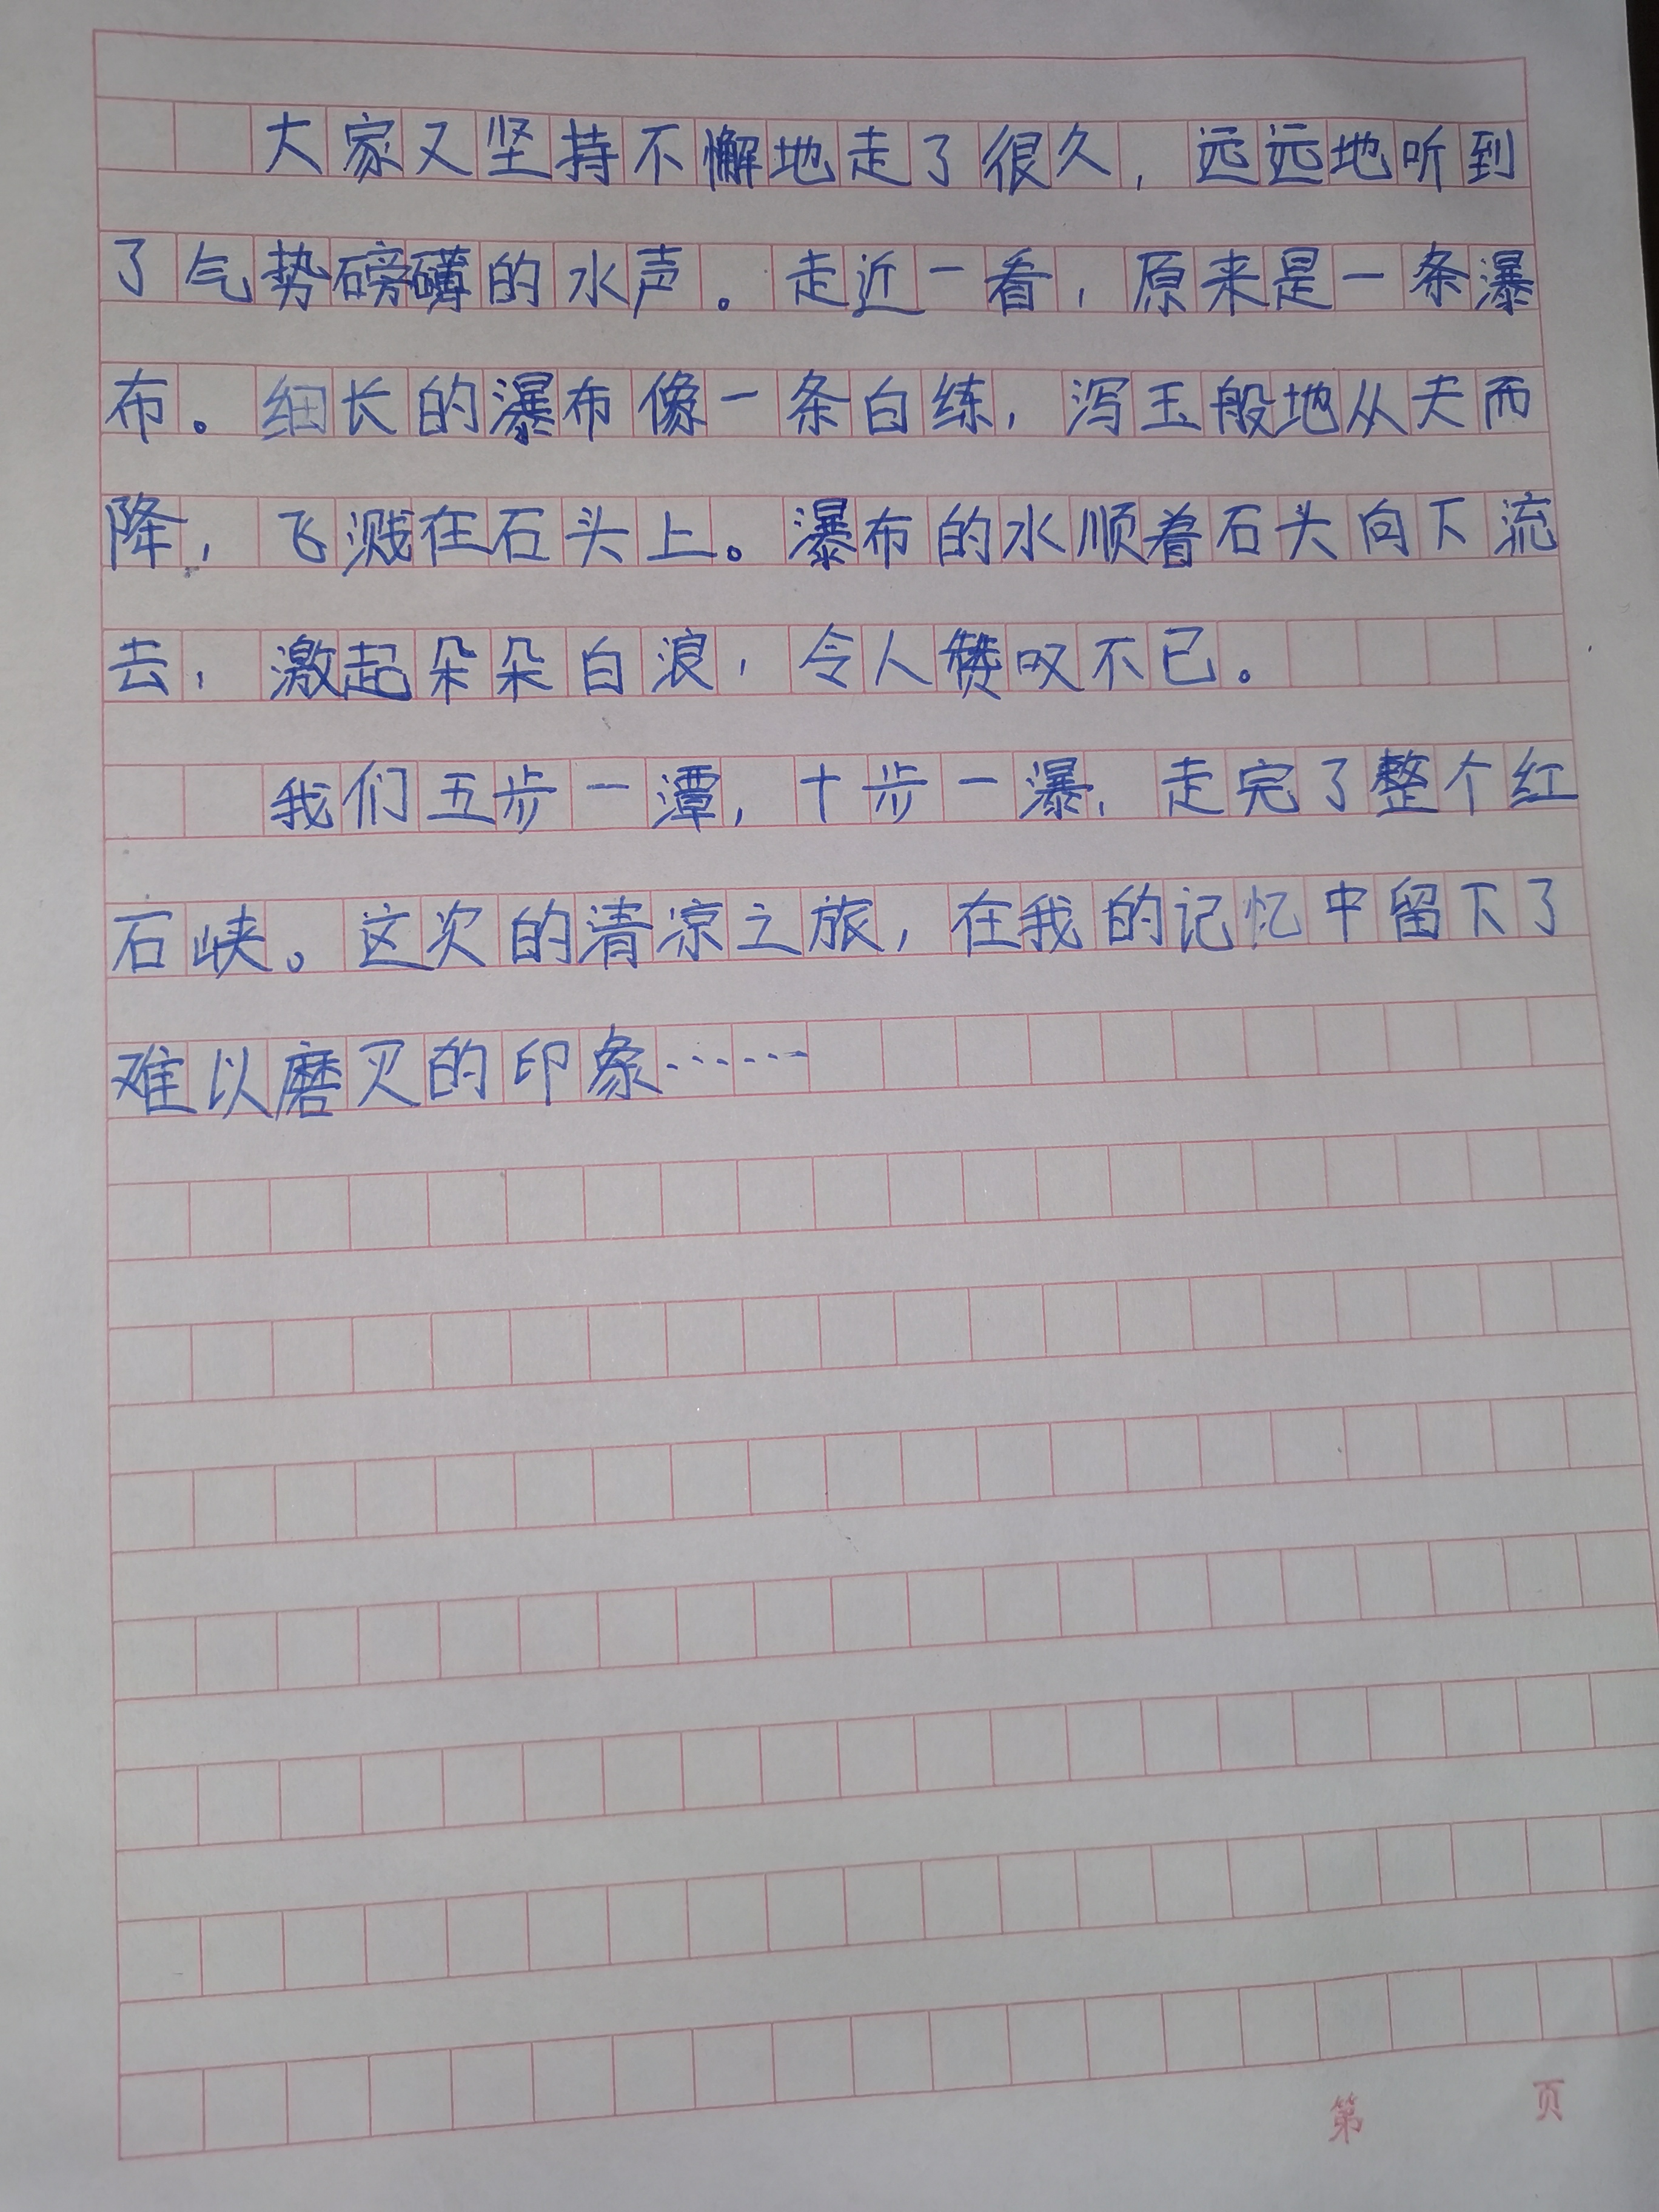 大家又坚持不懈地走了很久，远远地听到
了气势磅礴的水声。走近一看，原来是一条瀑
布。细长的瀑布像一条白练，泻玉般地从天而
降，飞溅在石头上。瀑布的水顺着石头向下流
去，激起朵朵白浪，令人赞叹不已。
我们五步一潭，十步一瀑，走完了整个红
石峡。这次的清凉之旅，在我的记忆中留下了
难以磨灭的印象……
第 页